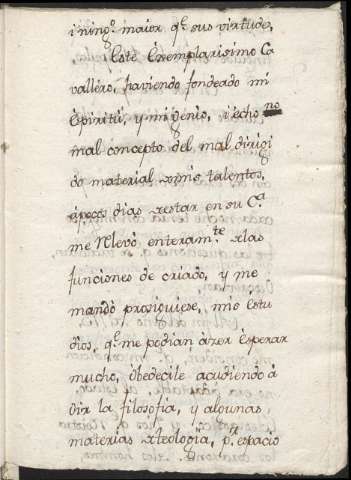 i ning.º maior q.e sus virtudes,
Este Exemplarisimo Ca
vallero, haviendo fondeado mi
Espiritu, y mi genio, i echo no
mal concepto del mal dirigi
do material de mis talentos,
á pocos dias de estar en su C.a
me Rlevó enteram.te de las
funciones de criado, y me
mandò prosiguiese, mis estu
dios, q.e me podian azer esperar
mucho, obedecile acudiendo á
oir la filosofia, y algunas
materias de teologia, p.r espacio